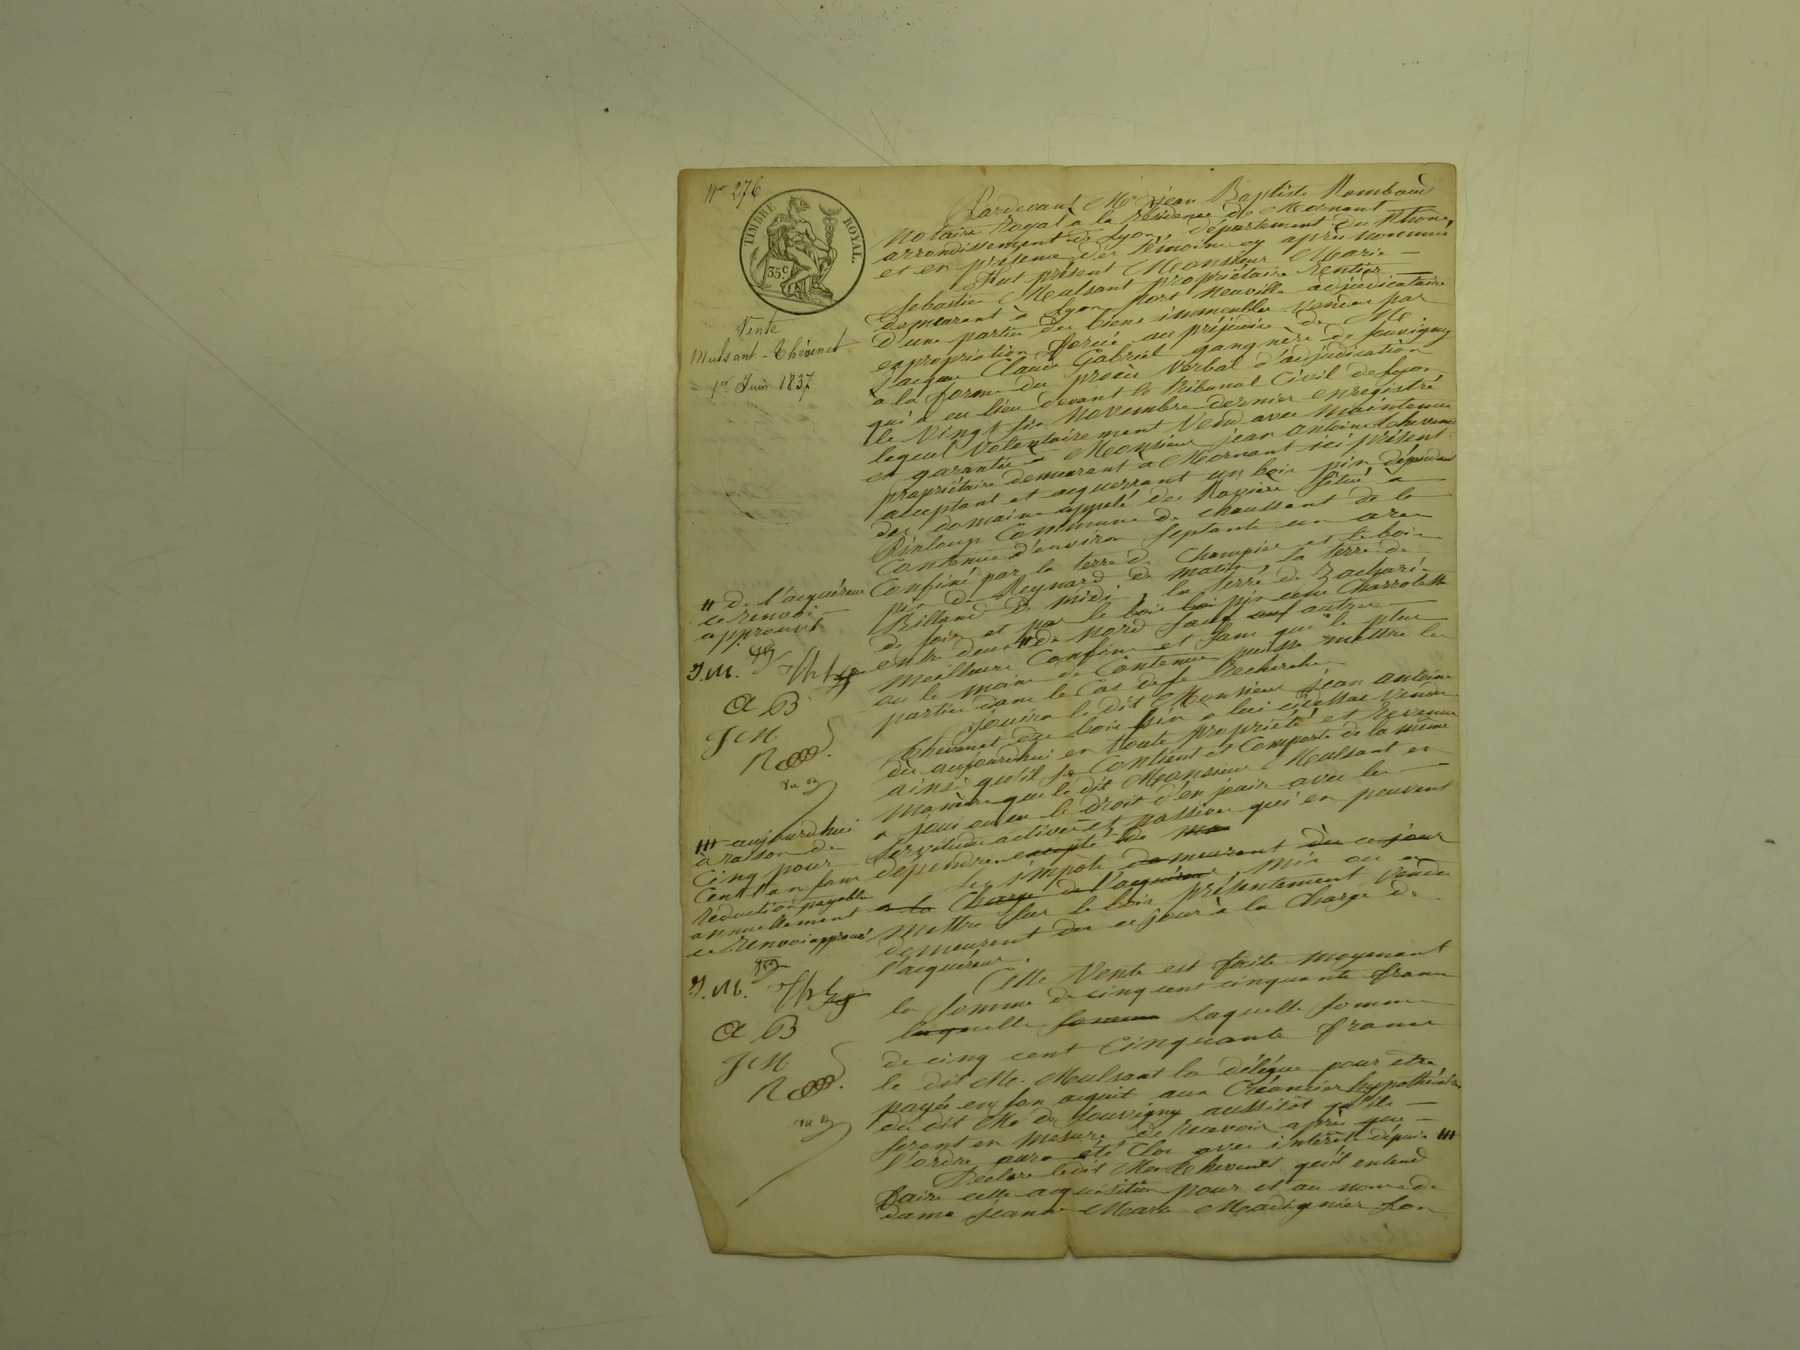 N° 276
TIMBRE ROYAL.
35c
Vente
Mulsant - Thévenet
1er Juin 1837
Pardevant Me jean Baptiste Rembaud
Notaire Royal à la Résidence de Mornant
arrondissement de Lyon, département du Rhone,
et en présence des témoins cy après nommés
Fut présent Monsieur Marie
Sebastien Mulsant propriétaire Rentier
demeurant à Lyon port Neuville adjudicataire
d'une partie des biens immeubles vendus par
expropriation forcée au préjudice de Mr
jacques Claude Gabriel gangnère de Souvigny
a la forme du procès verbal d'adjudication
qui a eu lieu devant le tribunal Civil de Lyon
le Vingt six Novembre dernier enregistré
lequel Volontairement Vend avec maintenue
et garantie à Monsieur jean antoine thevenet
propriétaire demeurant à Mornant ici présent
acceptant et acquerrant un bois pin dépendant
des domaine appelé des Ravière Situé à
Pinloup Commune de chaussant de la
Contenue d'environ Septante un ares
Confiné par la terre de Champier et le bois
pin de Reynard de matin, la terre de
Billand de midi, la terre de Zacharie
de soir et par le bois pin une Charrotte
entre deux # de Nord sauf autres
Meilleurs Confins et sans que le plus
ou le moins de Contenue puisse mettre les
parties dans le Cas de se Recherche
jouira le dit Monsieur jean antoine
thevenet du bois pin a lui cidessus vendu
dès aujourdhui en toute propriété et Revenus
ainsi qu'il se Contient et Comporte de la même
Manière que le dit Monsieur Mulsant en
a joui ou eu le droit d'en jouir avec les
Servitudes actives et passives qui en peuvent
dépendre
Les impôts demeurent dès ce jour
a la Charge de l'acquéreur, mis ou a
mettre sur le bois présentement vendu
demeurent dès ce jour à la Charge de
l'acquéreur.
Cette Vente est faite moyenant
la somme de cinq cent cinquante francs
laquelle somme Laquelle somme
de cinq cent Cinquante francs
le dit Mr. Mulsant la délègue pour etre
payée en son acquit aux Créancier hypothécaires
du dit Mr de Souvigny aussitôt qu'ils
seront en mesure de recevoir après que
l'ordre aura été Clos avec intérêts depuis #
Declare ledit Mr thevenet qu'il entend
faire cette acquisition pour et au nom de
dame jeanne Marie Madignier son
# de l'acquéreur
ce renvoi
approuvé
J.M.
A B
J M
R
# aujourdhui
à raison de
Cinq pour
Cent l'an sans
Reduction payable
annuellement
ce Renvoi approuvé
J.M.
A B
J M
R